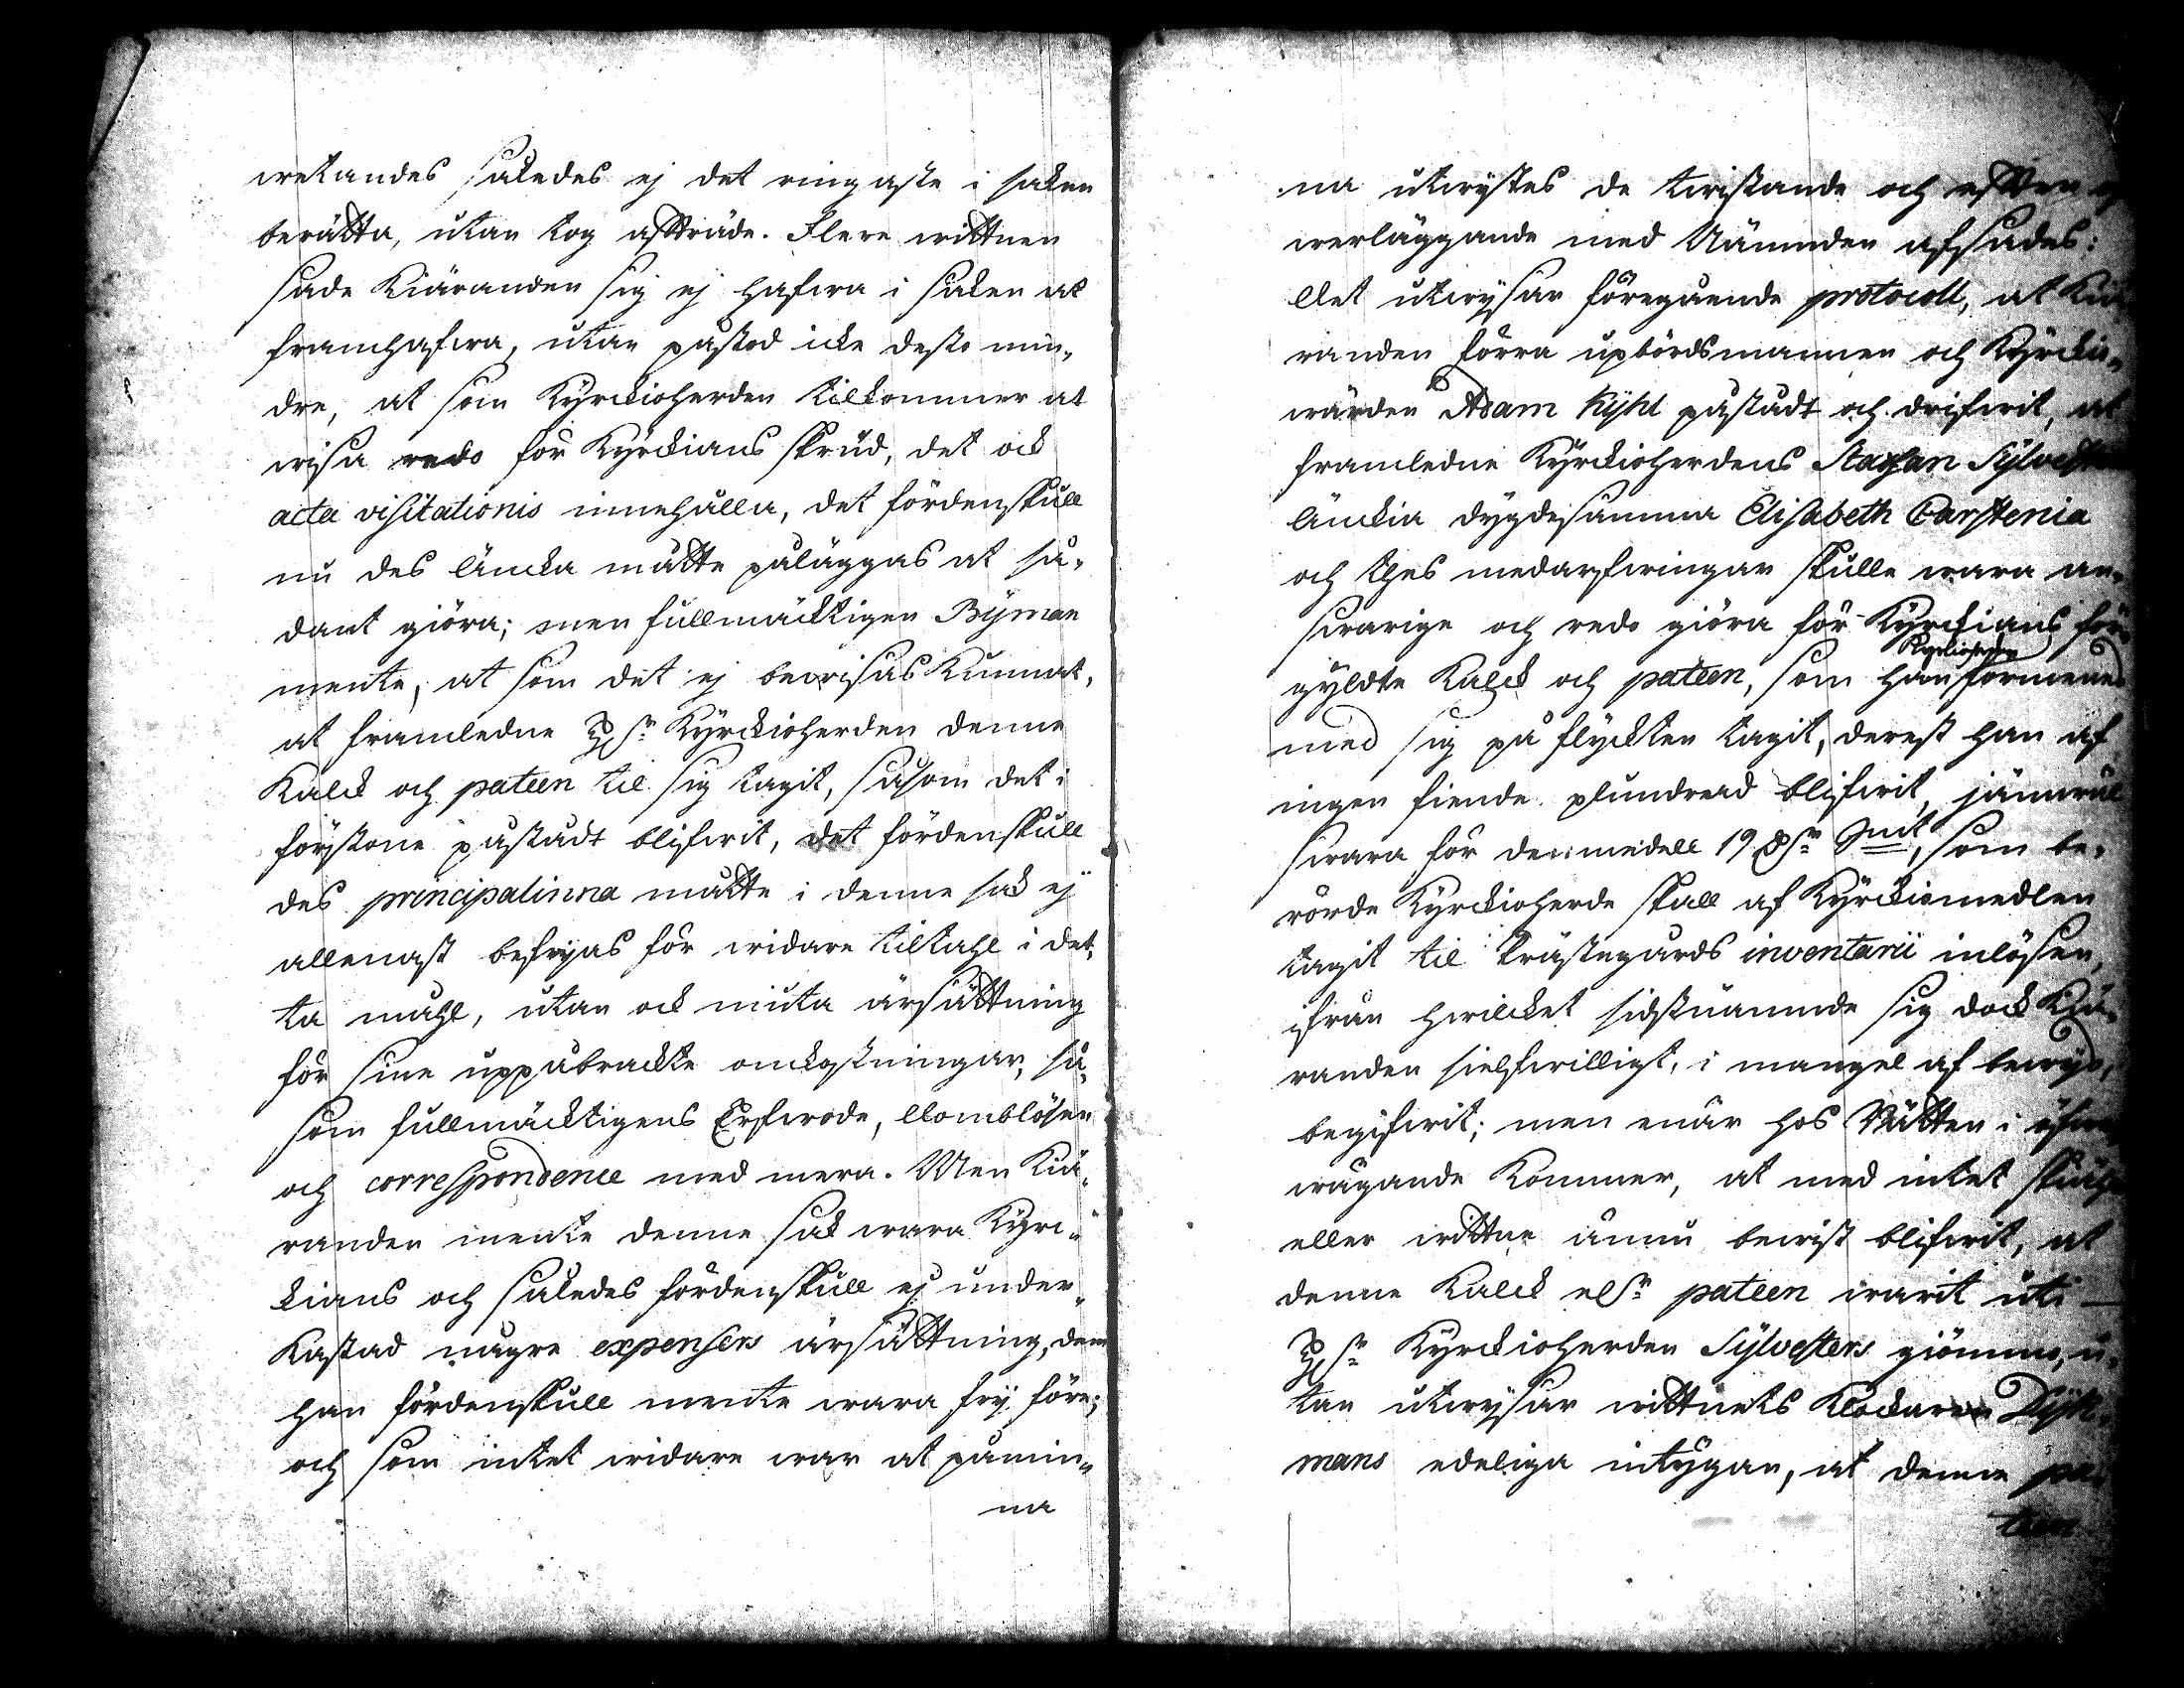 wetandes således ej det ringaste i saken
berätta, utan tog affträde. Flere wittnen
sade Kiäranden sig ej hafwa i saken at
framhafwa, utan påstod icke desto min„
dre, at som Kyrckioherden tilkommer at
wisa redo för Kyrckians skrud, det ock
acta visitationis innehålla, det fördenskull
nu des Enckia måtte påläggas at så„
dant giöra; men fullmäcktigen Byman
mente, at som det ej bewisas kunnat,
at framledne H:r Kyrckioherden denne
Kalck och pateen til sig tagit, såsom det i
förstone påstådt blifwit, det fördenskull
des principalinna måtte i denne sak ej
allenast befryas för widare tiltahl i det„
ta måhl, utan ock niuta ärsättning
för sine uppåbrackte omkostningar, så„
som fullmäcktigens Erfwode, Domblösen
och correspondence med mera. Men Kiä„
randen mente denne sak wara Kyrc„
kians och således fördenskull ej under„
kastad någre expensers ärsättning, dem
han fördenskull mente wara fry före;
och som intet widare war at påmin„
na
na utwystes de twistande och efter
werläggande med Nämnden afsades:
Det utwysar föregående protocoll, at Kiä
randen förra upbördsmannen och Kyrckio„
wärden Adam Kyhl påstådt och drifwit, at
framledne Kyrckioherdens Staffan Sylvesters
Enckia dygdesamma Elisabeth Carstenia
och thes medarfwingar skulle wara an„
swarige och redo giöra för Kyrckians för„
gyldte Kalck och pateen, som Kyrckioherden han förmenes
med sig på flyckten tagit, derest han af
ingen fiende plundrad blifwit, jämwäl
swara för de medell 19 D:r Smt, som be„
rörde Kyrckioherde skall af Kyrckiomedlen
tagit til Prästegårds inventarii inlösen,
ifrån hwilcket sidstnämnde sig dock Kiä„
randen sielfwilligt, i mangel af bewys,
begifwit; men enär hos Rätten i öfwer
wägande kommer, at med intet skiähl
eller wittne ännu bewist blifwit, at
denne Kalck el:r pateen warit uti —
H:r Kyrckioherden Sylvesters giömmo, u„
tan utwysar wittnets Klockaren Dyk„
mans edeliga intygan, at denne pa„
teen